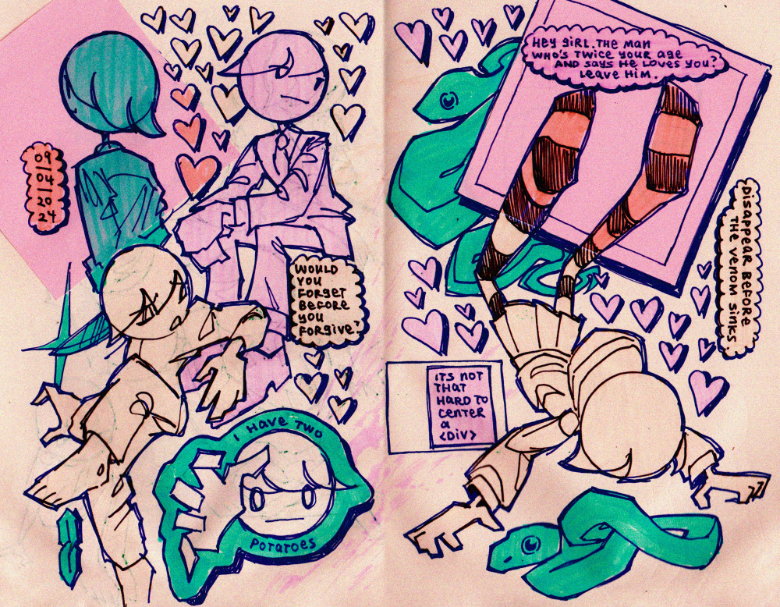 09
04
20
24
WOULD
YOU
FORGET
BEFORE
YOU
FORGIVE?
I HAVE TWO
POTATOES
HEY GIRL. THE MAN
WHO'S TWICE YOUR AGE
AND SAYS HE LOVES YOU?
LEAVE HIM.
DISAPPEAR BEFORE
THE VENOM SINKS
ITS NOT
THAT
HARD TO
CENTER
A
<DIV>